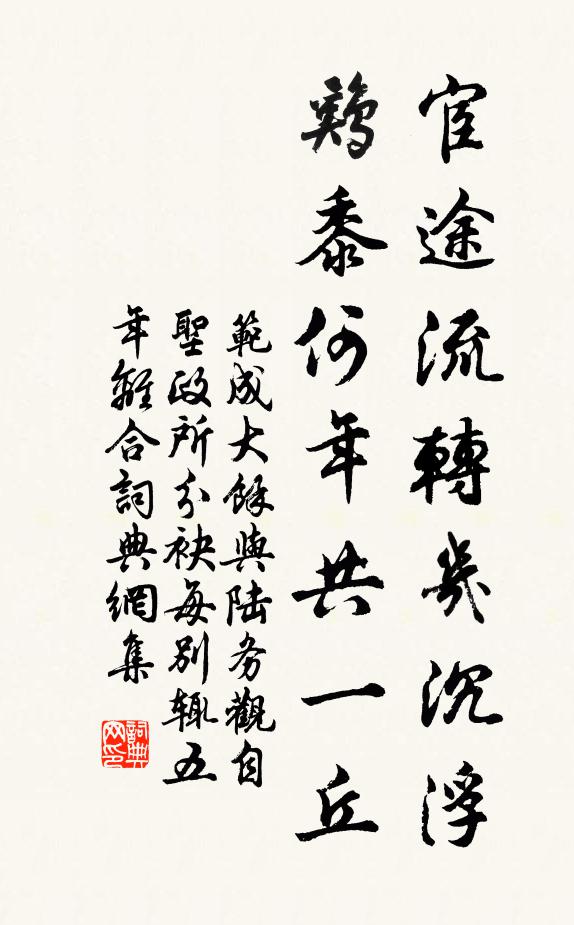 宦途流轉幾沉浮
鷄黍何年共一丘
範成大餘與陸務觀自
聖政所分袂每別輒五
年離合詞典網集
詞典網印